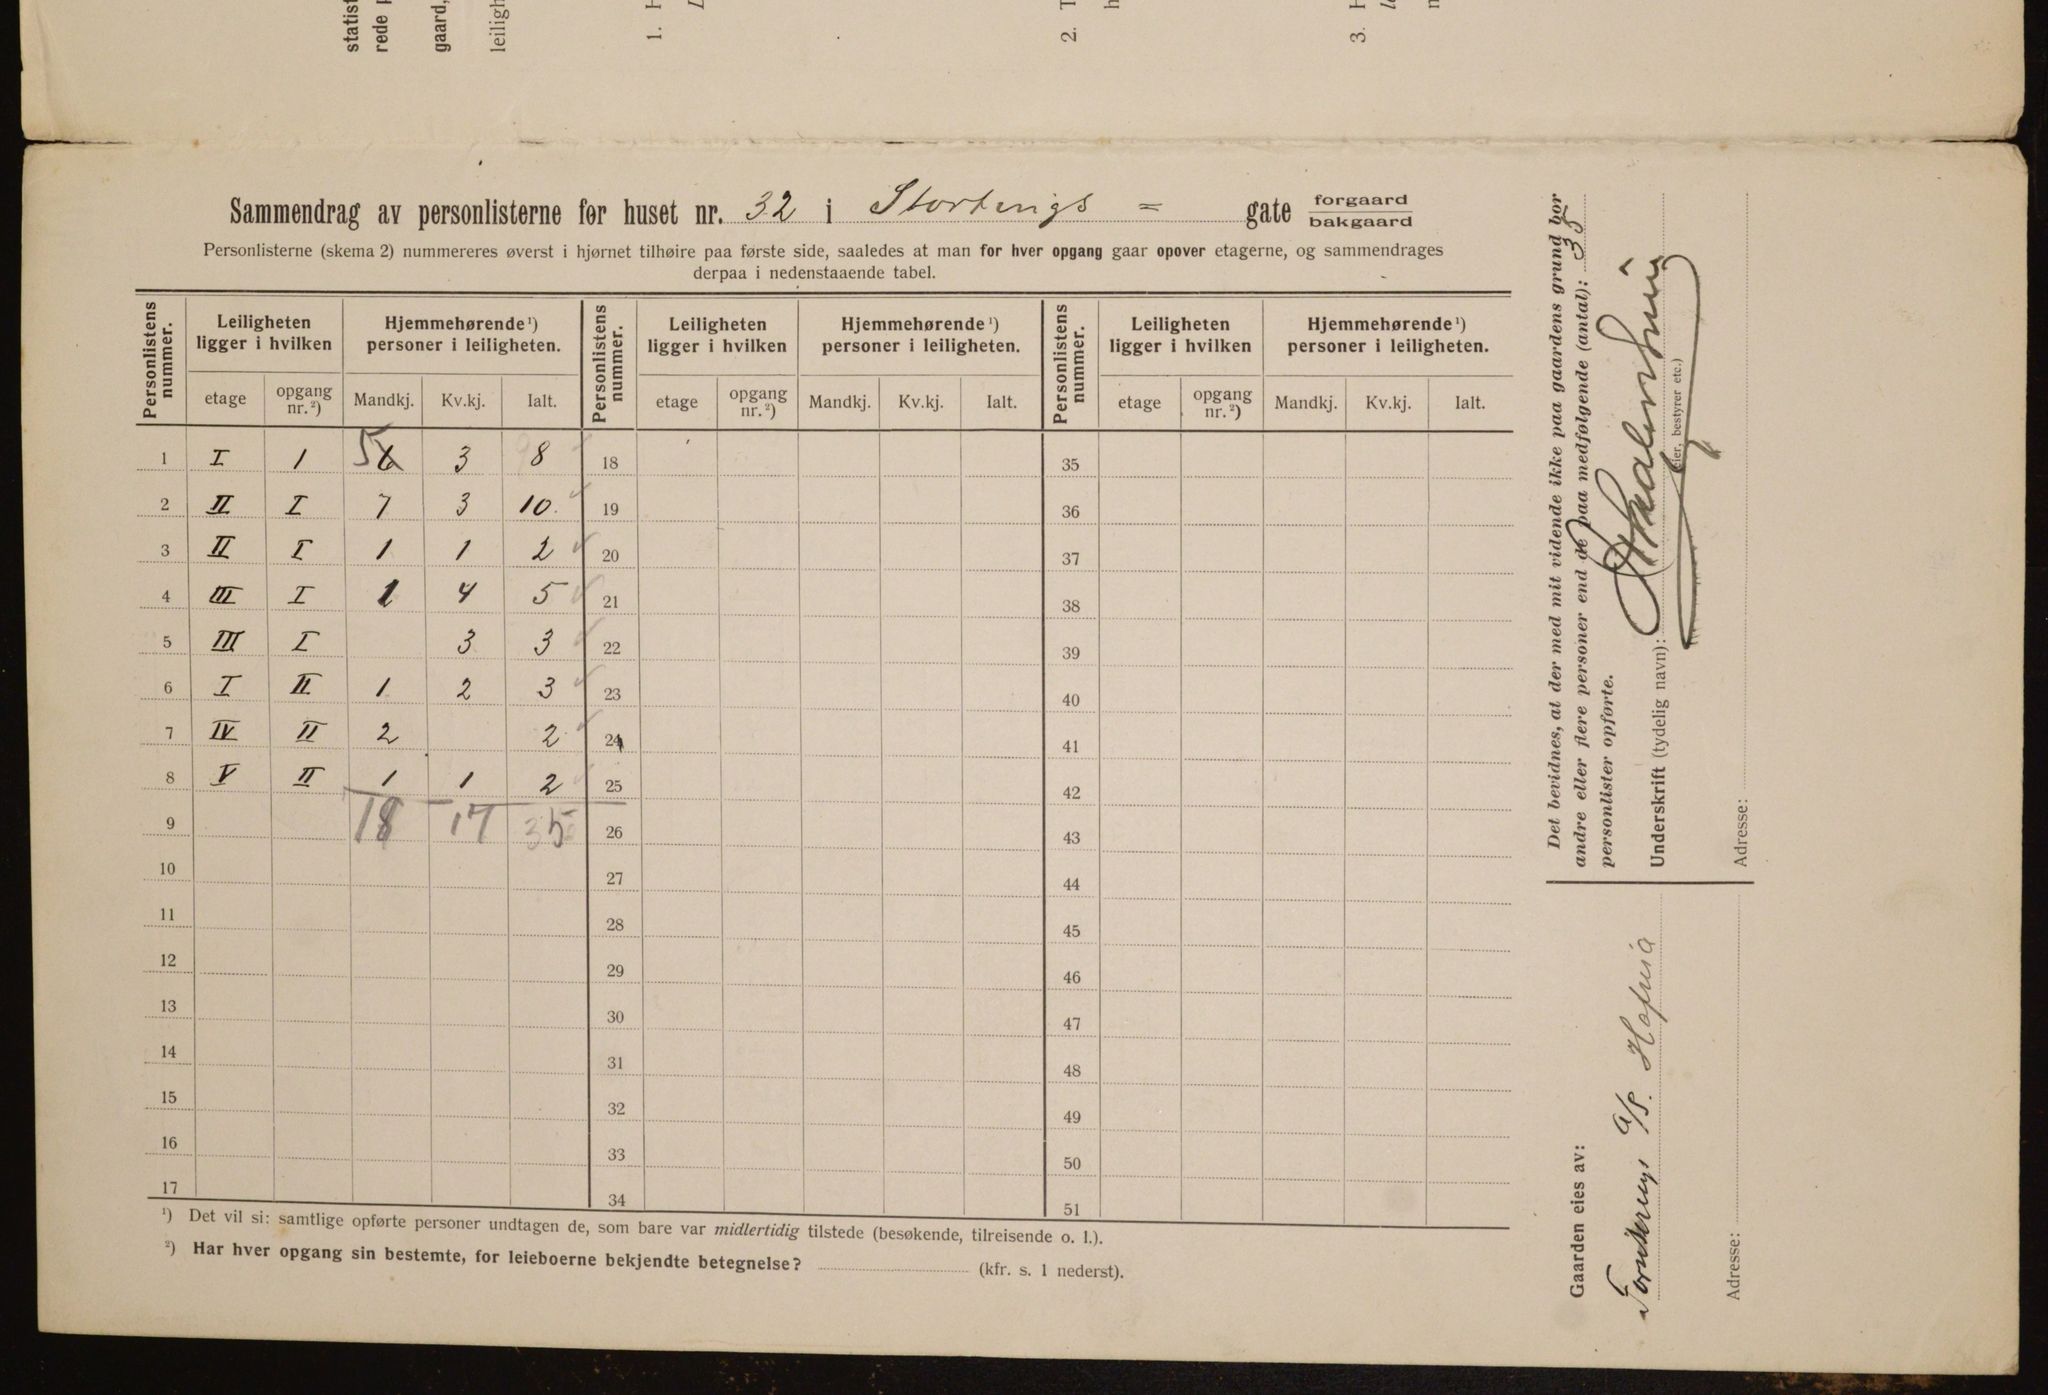 statist
rede p
gaard,
leiligh
1. H
2. T
h
3. H
Sammendrag av personlisterne for huset nr. 32 i Stortings = gate forgaard / bakgaard
Personlisterne (skema 2) nummereres øverst i hjørnet tilhøire paa første side, saaledes at man for hver opgang gaar opover etagerne, og sammendrages
derpaa i nedenstaaende tabel.
Personlistens nummer. Leiligheten ligger i hvilken Hjemmehørende ¹) personer i leiligheten. Personlistens nummer. Leiligheten ligger i hvilken Hjemmehørende ¹) personer i leiligheten. Personlistens nummer. Leiligheten ligger i hvilken Hjemmehørende ¹) personer i leiligheten.
etage opgang nr. ²) Mandkj. Kv.kj. Ialt. etage opgang nr. ²) Mandkj. Kv.kj. Ialt. etage opgang nr. ²) Mandkj. Kv.kj. Ialt.
1 I 1 5 6 3 8 18 35
2 II I 7 3 10 19 36
3 II I 1 1 2 20 37
4 III I 1 4 5 21 38
5 III I 3 3 22 39
6 I II 1 2 3 23 40
7 IV II 2 2 24 41
8 V II 1 1 2 25 42
9 18 17 35 26 43
10 27 44
11 28 45
12 29 46
13 30 47
14 31 48
15 32 49
16 33 50
17 34 51
¹) Det vil si: samtlige opførte personer undtagen de, som bare var midlertidig tilstede (besøkende, tilreisende o. l.).
²) Har hver opgang sin bestemte, for leieboerne bekjendte betegnelse? (kfr. s. 1 nederst).
Det bevidnes, at der med mit vidende ikke paa gaardens grund bor
andre eller flere personer end de paa medfølgende (antal): 35
personlister opførte.
Underskrift (tydelig navn):
(eier, bestyrer etc.)
Adresse:
Gaarden eies av:
A/S. Hafnia
Adresse: